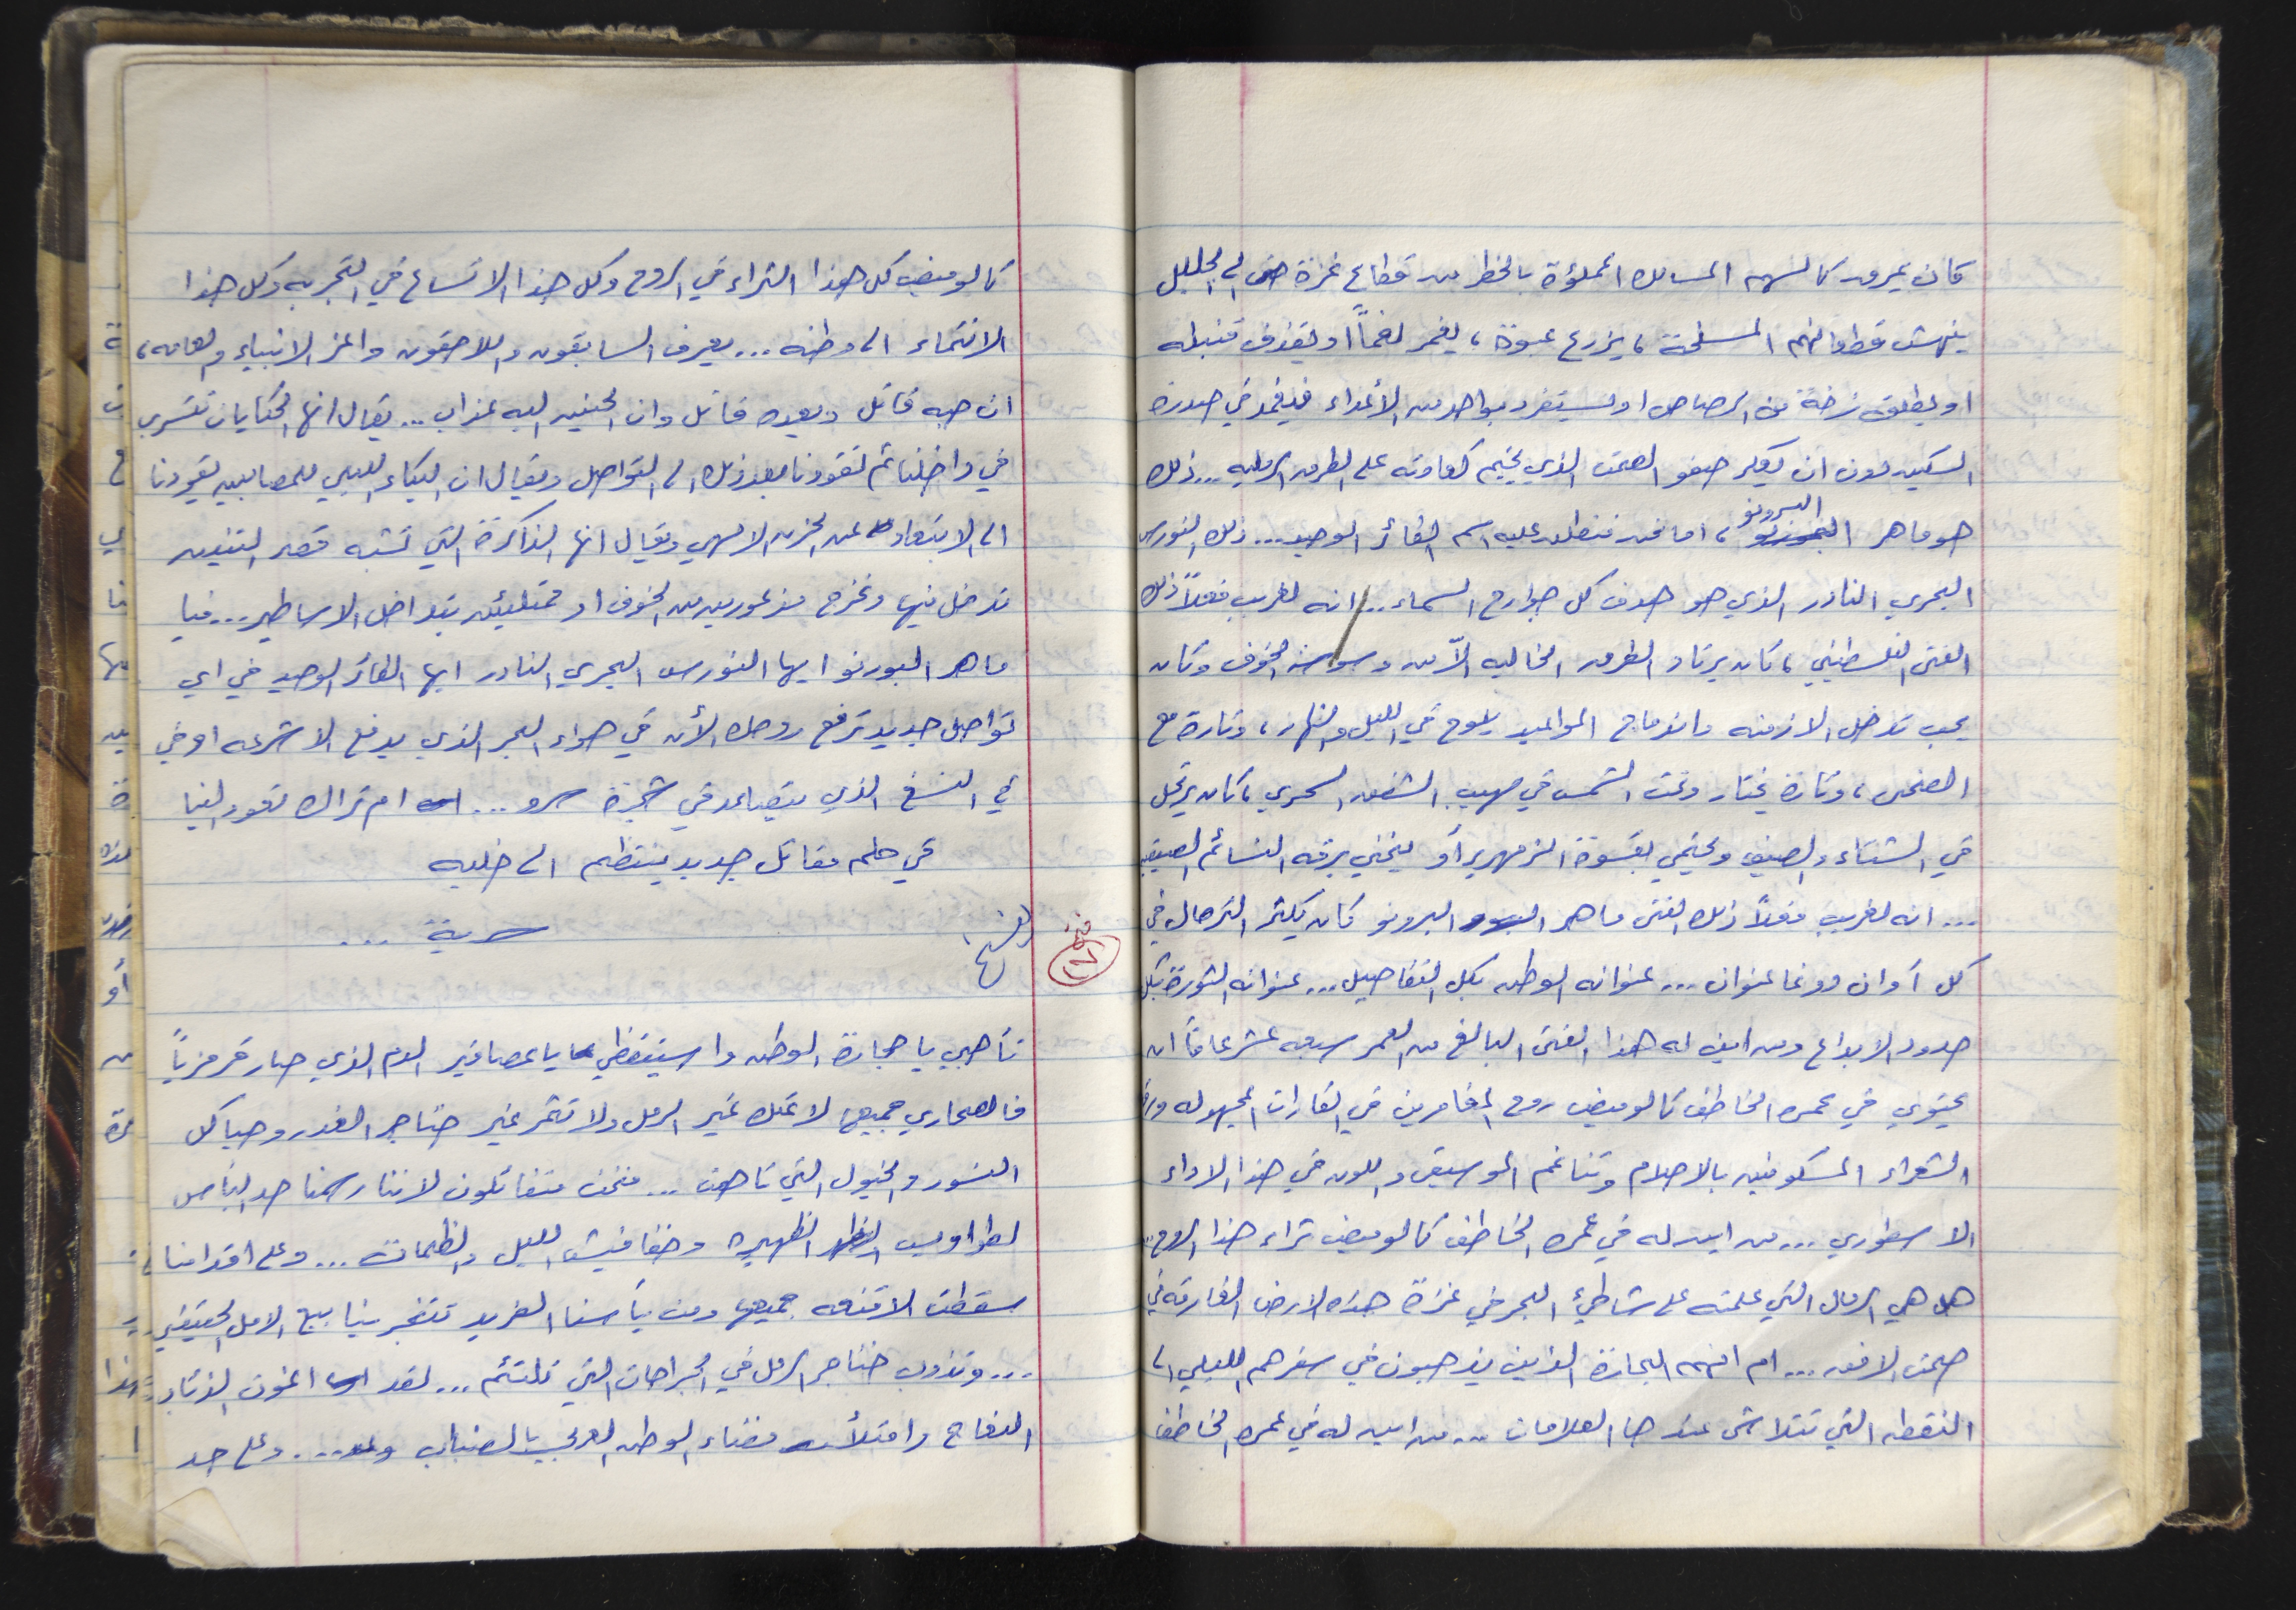 كان يمرق كالسهم المسالك المملؤة بالخطر من قطاع غزة حتى الجليل
ينهش قطعانهم المسلحة، يزرع عبوة، يفجر لغماً او يقذف قنبله
او يطلق زخة من الرصاص او يستفرد بواحد من الأعداء فيغمد في صدره
السكين دون ان يعكر صفو الصمت الذي يخيم كعادته على الطرق الرمليه... ذلك
هو ماهر البورنو، اما نحن فنطلق عليه اسم الفائز الوحيد... ذلك النورس
البحري النادر الذي هو هدف كل جوارح السماء... انه لغريب فعلاً ذلك
الفتى الفلسطيني، كان يرتاد الطرق الخاليه الاّ من وسوسة الخوف وكان
يحب تداخل الازمنه واندماج المواعيد يلوح في الليل والنهار، وتارة مع
الضحى، وتارة يختار وقت الشمس في صهيب الشفق السحري، كان يرتحل
في الشتاء والصيف ويحتمي بقسوة الزمهرير أو ينحني برقه النسائم الصيفيه
... انه لغريب فعلاً ذلك الفتى ماهر البورنو كان يكثر الترحال في
كل آوان دونما عنوان... عنوانه الوطن بكل التفاصيل... عنوانه الثورة بكل
حدود الابداع ومن اين له هذا الفتى البالغ من العمر سبعه عشر عاماً ان
يحتوي في عمره الخاطف كالوميض روح المغامرين في القارات المجهوله
الشعراء المسكونين بالاحلام وتناغم الموسيقى واللون في هذا الاداء
الاسطوري... من اين له في عمره الخاطف كالوميض ثراء هذا الروح..
هل هي الرمال التي علمته على شاطئ البحر في غزة هذه الارض الغارقه في
صمت الافق... ام انهم البحارة الذين يذهبون في سفرهم الليلي الى
النقطه التي تتلاشى عندها العلامات ... من اين له في عمره الخاطف
كالوميض كل هذا الثراء في الروح وكل هذا الاتساع في التجربه وكل هذا
الانتماء الى وطنه... يعرف السابقون واللاحقون واعز الانبياء والعامه،
ان حبه قاتل وبعده قاتل وان الحنين اليه عذاب... يقال انها الحكايات تتسرب
في داخلنا ثم تقودنا بعد ذلك الى التواصل ويقال ان البكاء الليلي للمصابين يقودنا
الى الابتعاد عن الحزن الالهي ويقال انها الذاكرة التي تشبه قصر التنين
ندخل فيها ونخرج مذعورين من الخوف او ممتلئين بتداخل الاساطير... فيا
ماهر البورنو ايها النورس البحري النادر ايها الفائز الوحيد في اي
تواصل جديد ترفع روحك الأن في هواء البحر الذي يدفع الاشرعه او في
في النسغ الذي يتصاعد في شجرة سرو... ام تراك تعود الينا
في حلم مقاتل جديد ينتظم الى خليه
سرية ...
١٧
تأهبي يا حجارة الوطن واستيقظي يا عصافير الدم الذي صار قرمزياً
فالصحاري جميعها لا تملك غير الرمل ولا تثمر غير خناجر الغدر وصبا كل
النسور والخيول التي تاهت... فنحن متفائلون لاننا رسمنا حد اليأس
لطواويس الظهيره وخفافيش الليل والظلمات... وعلى اقدامنا
سقطت الاقنعه جميعها ومن يأسنا الفريد تتفجر ينابيع الامل الحقيقي
... وتذوب خناجر الرمل في الجراحات التي تلتئم... لقد
التفاح وامتلأ فضاء الوطن العربي بالضباب .... وعلى حد